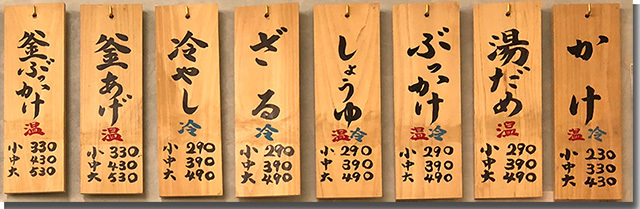 かけ
温 冷
小 230
中 330
大 430
湯だめ
温
小 290
中 390
大 490
ぶっかけ
温 冷
小 290
中 390
大 490
しょうゆ
温 冷
小 290
中 390
大 490
ざる
冷
小 290
中 390
大 490
冷やし
冷
小 290
中 390
大 490
釜あげ
温
小 330
中 430
大 530
釜ぶっかけ
温
小 330
中 430
大 530